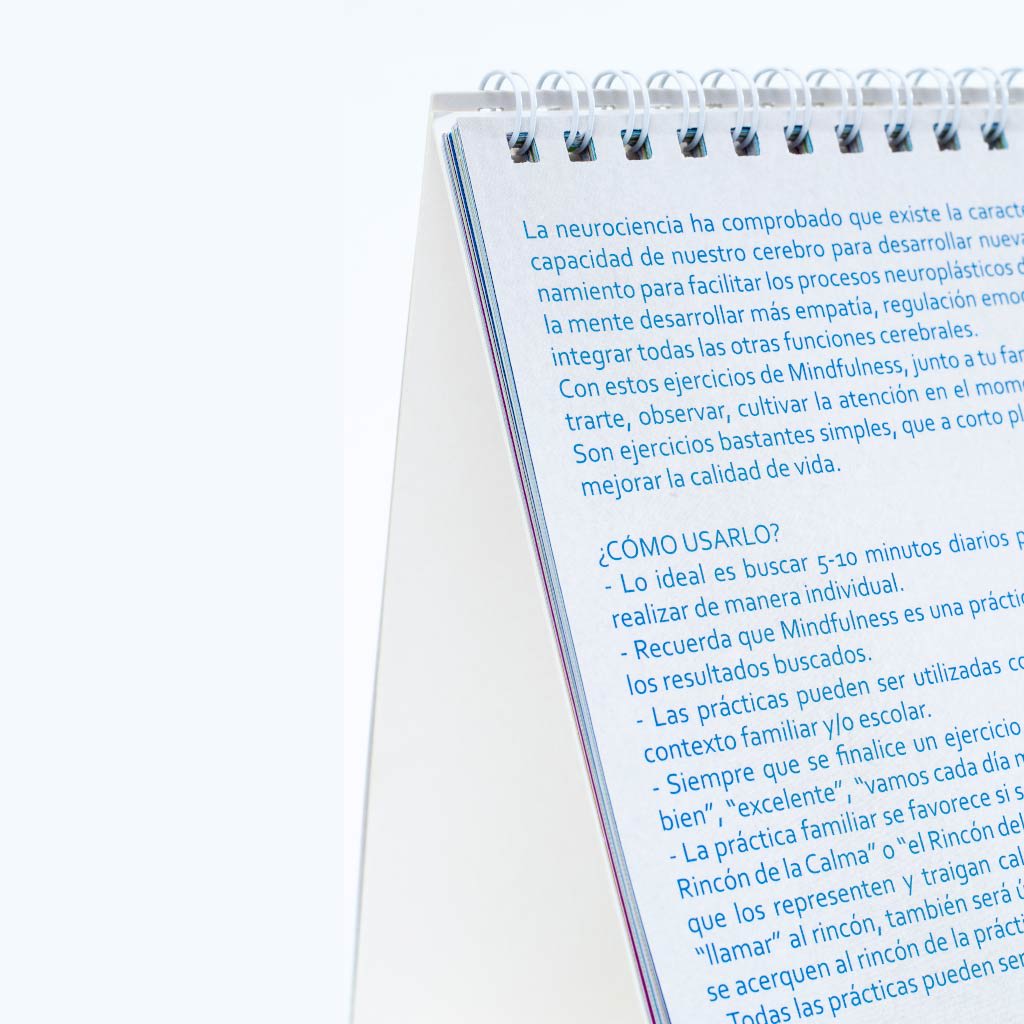 La neurociencia ha comprobado que existe la
capacidad de nuestro cerebro para desarrollar
namiento para facilitar los procesos neuroplásticos
la mente desarrollar más empatía, regulación
integrar todas las otras funciones cerebrales.
Con estos ejercicios de Mindfulness, junto a tu
trarte, observar, cultivar la atención en el
Son ejercicios bastantes simples, que a corto
mejorar la calidad de vida.
¿CÓMO USARLO?
- Lo ideal es buscar 5-10 minutos diarios
realizar de manera individual.
- Recuerda que Mindfulness es una
los resultados buscados.
- Las prácticas pueden ser utilizadas
contexto familiar y/o escolar.
- Siempre que se finalice un ejercicio
bien”, “excelente”, “vamos cada día
- La práctica familiar se favorece si
Rincón de la Calma” o “el Rincón del
que los representen y traigan
“llamar” al rincón, también será
se acerquen al rincón de la
Todas las prácticas pueden ser